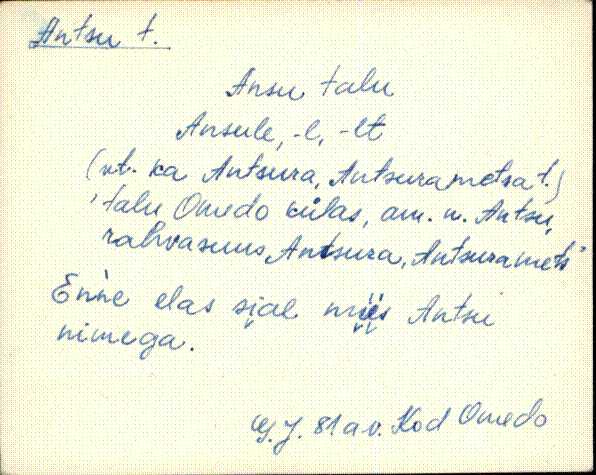 Antsu t.
Ansu talu
Ansule, -l, -lt
(vt. ka Antsura, Antsurametsa t.)
'talu Omedo külas, am. n. Antsu,
rahvasuus Antsura, Antsuramets'
Enne elas sjal mies Antsu
nimega.
81 a v. Kod Omedo